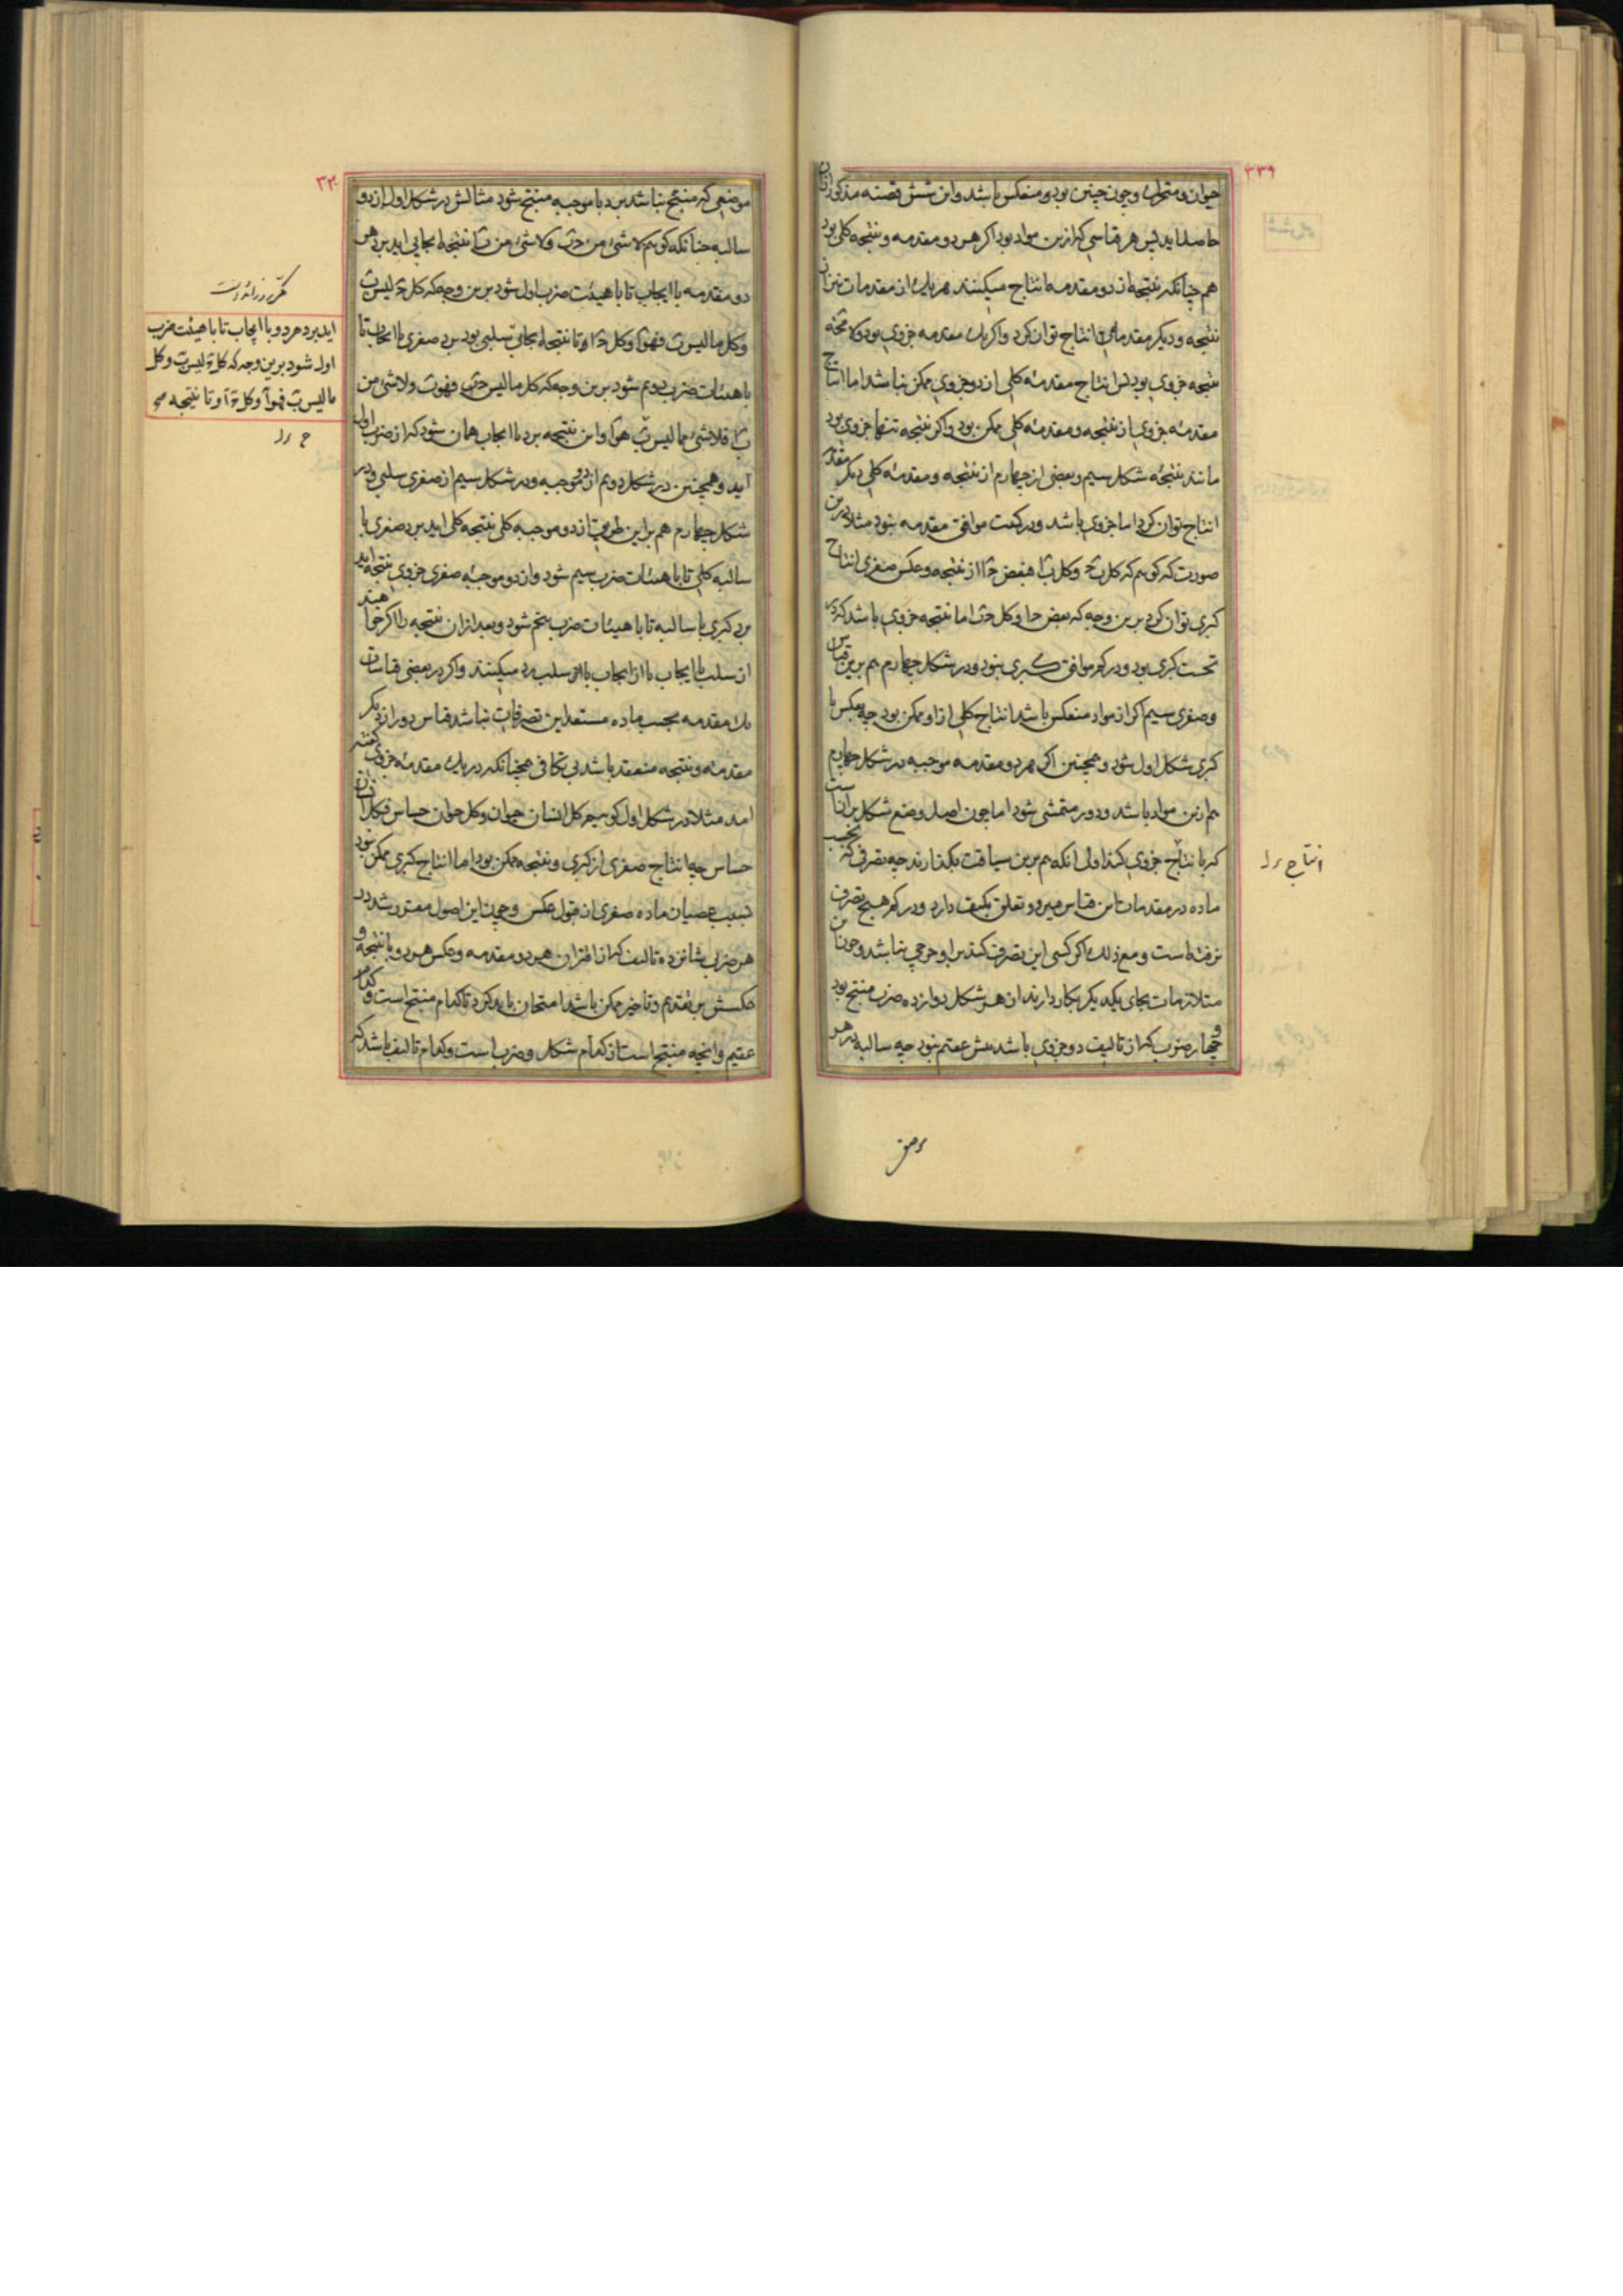 ۳۳۹
حیوان و متحرک و چون چنین بود و منعکس باشد و این شش قضیه مذکور ازان
حاصل اید پس هر قیاسی که ازین مواد بود اکر هر دو مقدمه و نتیجه کلی بود
هم چنانکه نتیجه از دو مقدمه انتاج میکنند هر یک از مقدمات نیز از
نتیجه و دیکر مقدمه انتاج توان کرد و اکر یک مقدمه جزوی بود ولا محاله
نتیجه جزوی بود پس انتاج مقدمهٔ کلی از دو جزوی ممکن نباشد اما انتاج
مقدمهٔ جزوی از نتیجه و مقدمهٔ کلی ممکن بود و اکر نتیجه تنها جزوی بود
مانند نتیجهٔ شکل سیم و بعضی از چهارم از نتیجه و مقدمهٔ کلی دیکر مقدمه
انتاج توان کرد اما جزوی باشد و در کمیت موافق مقدمه نبود مثلا درین
صورت که کوییم که کل ب ج و کل ب ا فبعض ج ا از نتیجه و عکس صغری انتاج
کبری توان کرد برین وجه که بعض ج ا و کل ج ب اما نتیجه جزوی باشد که در
تحت کبری بود و در کم موافق کبری نبود و در شکل چهارم هم برین قیاس
و صغری سیم اکر از مواد منعکس باشد انتاج کلی ازو ممکن بود چه بعکس با
کبری شکل اول شود و همچنین اکر هر دو مقدمه موجبه در شکل چهارم
هم ازین مواد باشد و دور متمشی شود اما چون اصل وضع شکل برآنست
که با نتاج جزوی کند اولی انکه هم برین سیاقت بکذارند چه تصرفی که بحسب
ماده در مقدمات این قیاس میرود تعلق بکیف دارد و در کم هیچ تصرف
نرفته است و مع ذلک اکر کسی این تصرف کند برو حرجی نباشد و چون این
متلازمات بجای یکدیکر بکار دارند از هر شکل دوازده ضرب منتج بود
و چهار ضرب که از تالیف دو جزوی باشد عقیم بود چه سالبه در هر
انتاج ء ل
۳۴۰
موضعی که منتج نباشد برد با موجبه منتج شود مثالش در شکل اول از دو
سالبه چنانکه کوییم لا شئ من ج ب و لا شئ من ب ا نتیجه ایجابی اید برد هر
دو مقدمه با ایجاب تا با هیئت ضرب اول شود برین وجه که کل ج لیس ب
و کل ما لیس ب فهو ا و کل ج ا و تا نتیجه ایجابی سلبی بود برد صغری با ایجاب تا
با هیئات ضرب دوم شود برین وجه که کل ما لیس ج ب فهو ب و لا شئ من
ب ا فلا شئ مما لیس ب هو ا و این نتیجه برد با ایجاب همان شود که از ضرب اول
آید و همچنین در شکل دویم از دو موجبه و در شکل سیم از صغری سلبی و در
شکل چهارم هم براین طریق از دو موجبه کلی نتیجه کلی اید برد صغری با
سالبه کلی تا با هیئات ضرب سیم شود و از دو موجبهٔ صغری جزوی نتیجه اید
برد کبری با سالبه تا با هیئات ضرب پنجم شود و بعد ازان نتیجه را اکر خواهند
از سلب با ایجاب یا از ایجاب با سلب رد میکنند و اکر در بعضی قیاسات
یک مقدمه بحسب ماده مستعد این تصرفات نباشد قیاس دور از دیکر
مقدمه و نتیجه منعقد باشد بی تکافی همچنانکه در یک مقدمهٔ جزوی کفته
امد مثلا در شکل اول کوییم کل انسان حیوان و کل حیوان حساس فکل انسان
حساس چه انتاج صغری از کبری و نتیجه ممکن بود اما انتاج کبری ممکن نبود
بسبب عصیان ماده صغری از قبول عکس و چون این اصول مقرر شد در
هر ضربی شانزده تالیف که از اقتران هر دو مقدمه و عکس هر دو با نتیجه و
عکسش بر تقدیم و تاخیر ممکن باشد امتحان باید کرد تا کدام منتج است و کدام
عقیم و انچه منتج است از کدام شکل و ضرب است و کدام تالیف باشد که
اید برد هر دو با ایجاب تا با هیئت ضرب
اول شود برین وجه که کل ج لیس ب و کل
ما لیس ب فهو آ و کل ج آ و تا نتیجه
ح ء ل